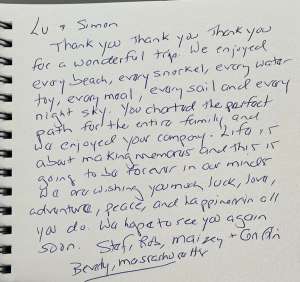 Lu + Simon
Thank you Thank you Thank you
for a wonderful trip. We enjoyed
every beach, every snorkel, every water
toy, every meal, every sail and every
night sky. You charted the perfect
path for the entire family and
we enjoyed your company. Life is
about making memories and this is
going to be forever in our minds
We are wishing you much luck, love,
adventure, peace, and happiness in all
you do. We hope to see you again
soon. Rob, Maizey +
Beverly, Massachusetts